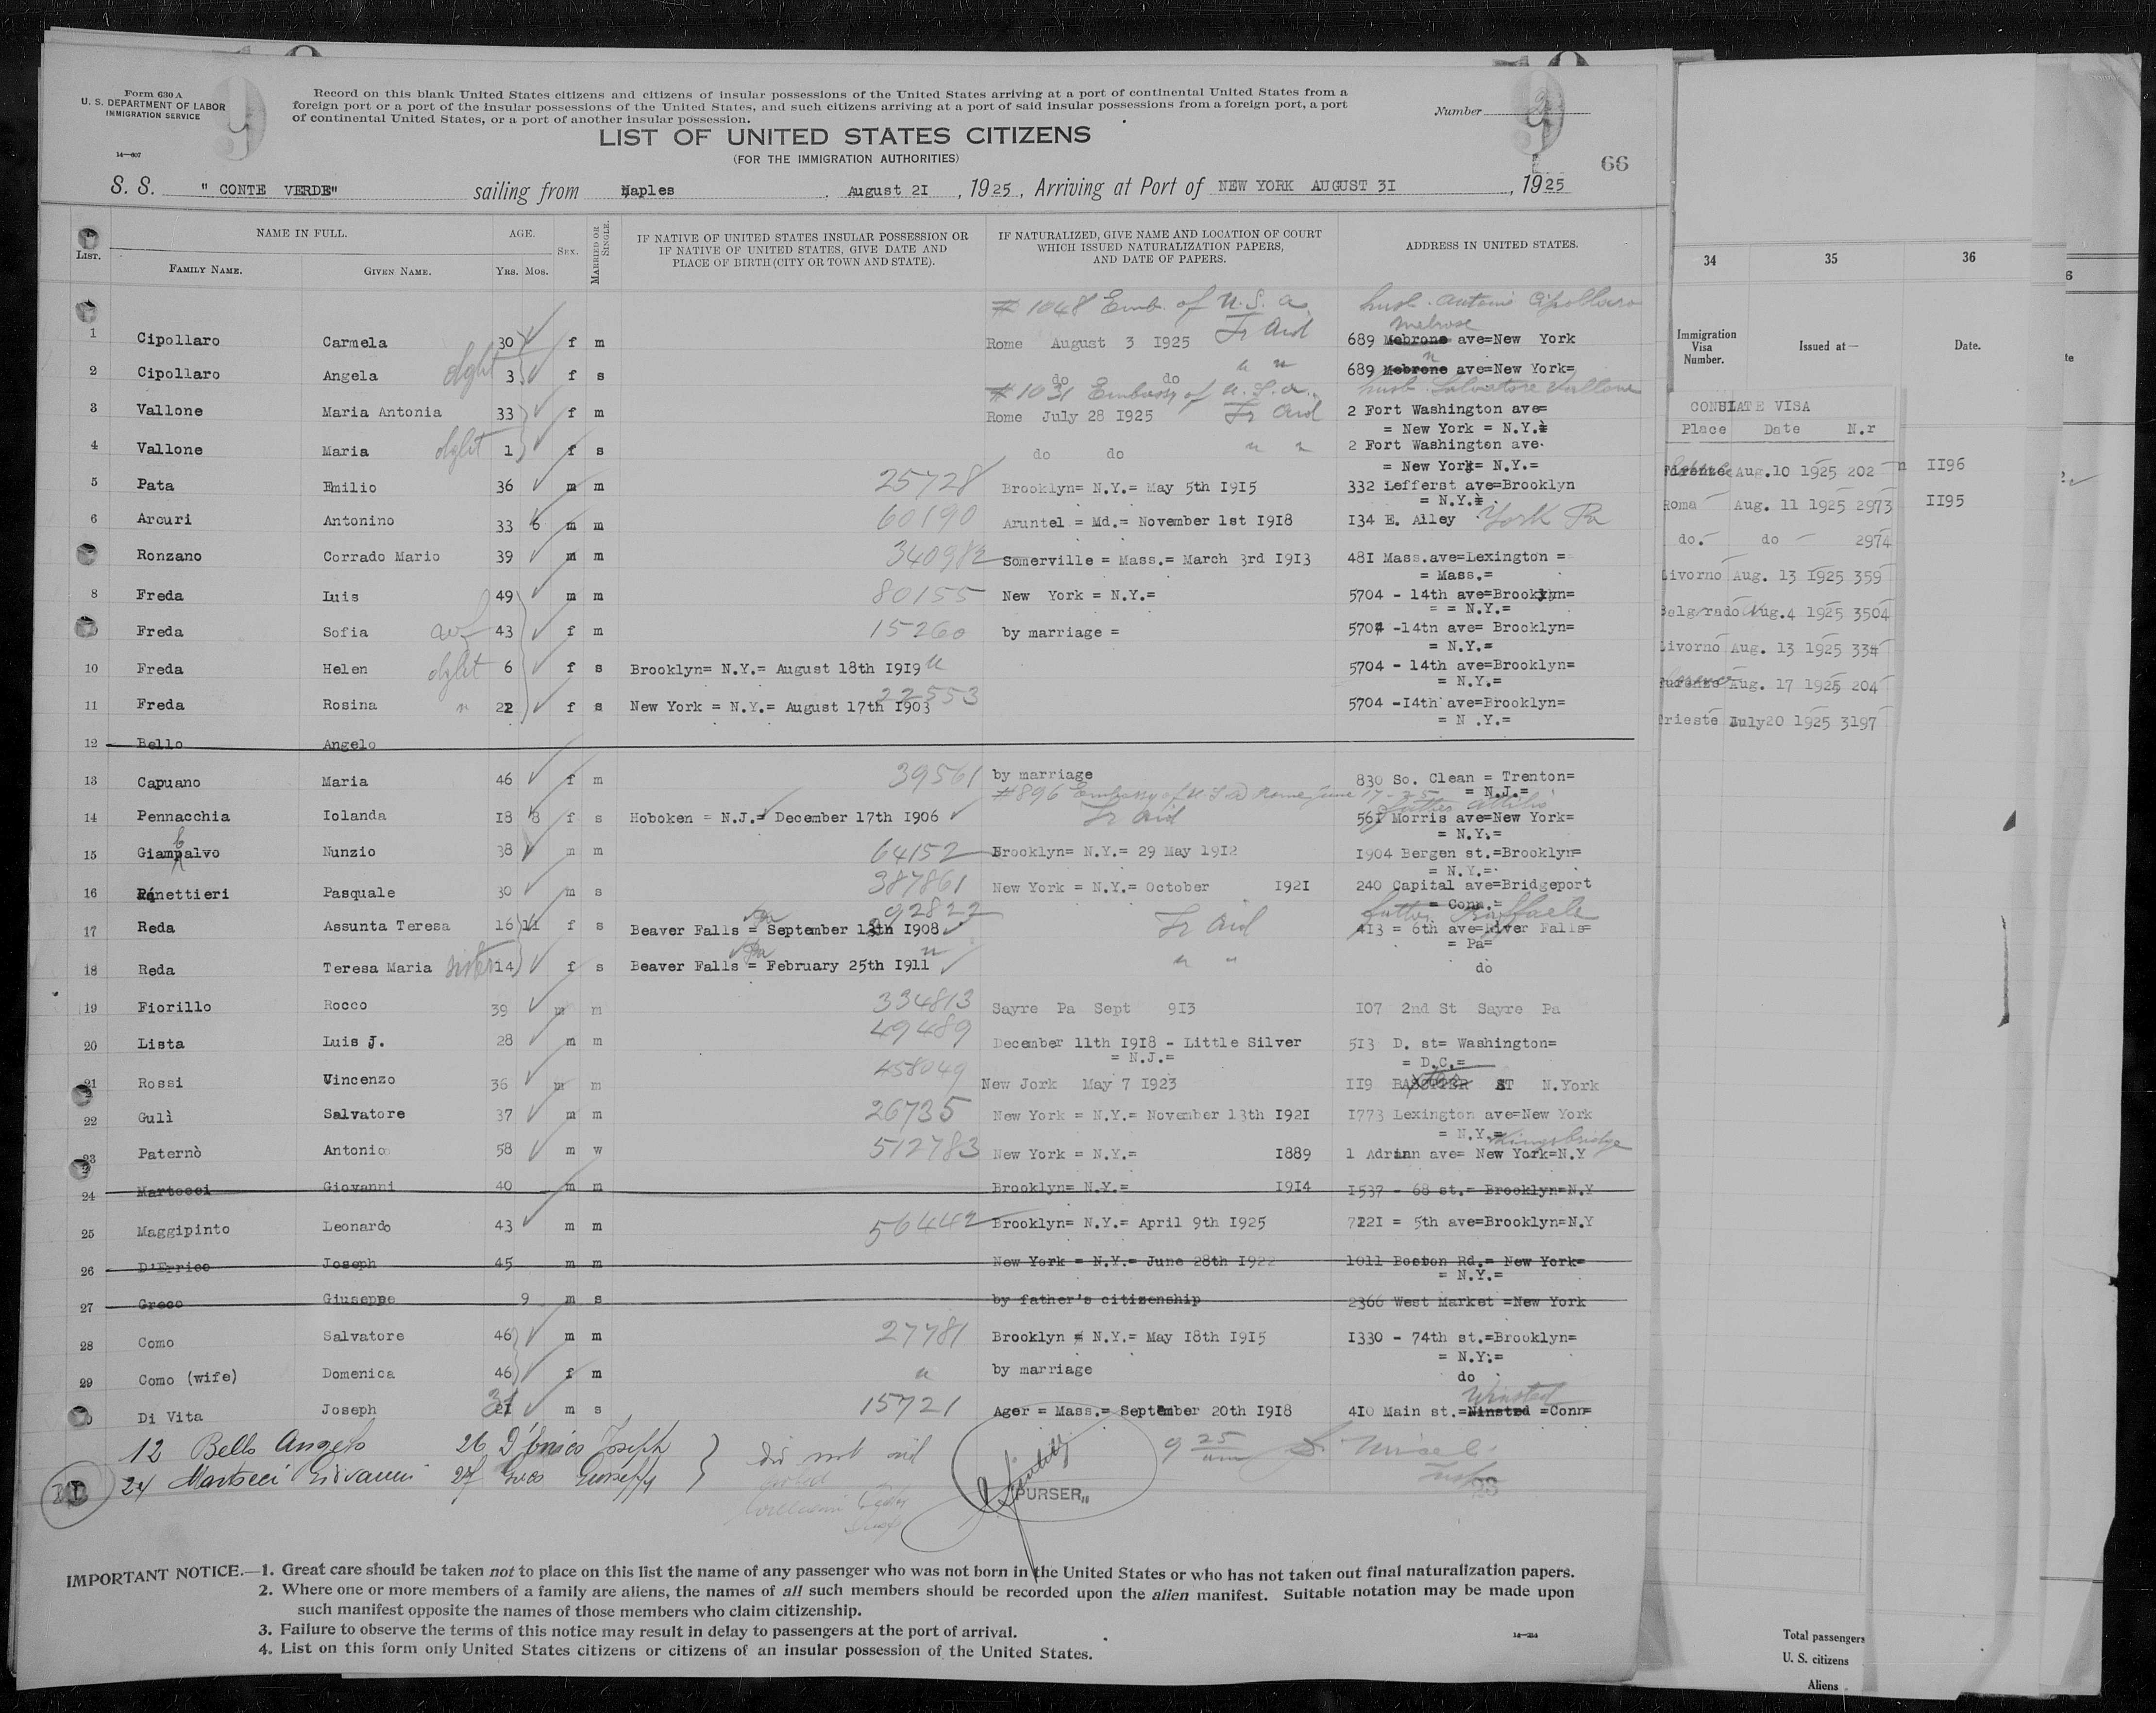 Form 630 A
U. S. DEPARTMENT OF LABOR
IMMIGRATION SERVICE
14—607
Record on this blank United States citizens and citizens of insular possessions of the United States arriving at a port of continental United States from a
foreign port or a port of the insular possessions of the United States, and such citizens arriving at a port of said insular possessions from a foreign port, a port
of continental United States, or a port of another insular possession.
Number
9
66
LIST OF UNITED STATES CITIZENS
(FOR THE IMMIGRATION AUTHORITIES)
S. S. " CONTE VERDE" sailing from Naples , August 2I , 1925, Arriving at Port of NEW YORK AUGUST 3I , 1925
LIST. NAME IN FULL. AGE. SEX. MARRIED OR SINGLE. IF NATIVE OF UNITED STATES INSULAR POSSESSION OR IF NATIVE OF UNITED STATES, GIVE DATE AND PLACE OF BIRTH (CITY OR TOWN AND STATE). IF NATURALIZED, GIVE NAME AND LOCATION OF COURT WHICH ISSUED NATURALIZATION PAPERS, AND DATE OF PAPERS. ADDRESS IN UNITED STATES.
FAMILY NAME. GIVEN NAME. YRS. MOS.
# 1048 Emb. of U.S.a. husb. Antonio Cipollaro
Melrose
1 Cipollaro Carmela 30 f m Rome August 3 I925 689 Mebrone ave=New York
2 Cipollaro Angela dght 3 f s do do 689 Mebrone ave=New York=
# 1031 Embassy of U.S.a. husb. Salvatore Vallone
3 Vallone Maria Antonia 33 f m Rome July 28 I925 2 Fort Washington ave=
= New York = N.Y.=
4 Vallone Maria dght 1 f s do do 2 Fort Washington ave.
= New York= N.Y.=
5 Pata Emilio 36 m m 25728 Brooklyn= N.Y.= May 5th I9I5 332 Lefferst ave=Brooklyn
= N.Y.=
6 Arcuri Antonino 33 6 m m 60190 Aruntel = Md.= November 1st I9I8 I34 E. Alley York Pa
Ronzano Corrado Mario 39 m m 340982 Somerville = Mass.= March 3rd I9I3 48I Mass.ave=Lexington =
= Mass.=
8 Freda Luis 49 m m 80155 New York = N.Y.= 5704 - 14th ave=Brooklyn=
= = N.Y.=
Freda Sofia 43 f m 15260 by marriage = 5704 -14tn ave= Brooklyn=
= N.Y.=
10 Freda Helen dght 6 f s Brooklyn= N.Y.= August 18th I9I9 5704 - 14th ave=Brooklyn=
= N.Y.=
11 Freda Rosina " 22 f s New York = N.Y.= August 17th I903 22553 5704 -I4th ave=Brooklyn=
= N .Y.=
12 Bello Angelo
13 Capuano Maria 46 f m 39561 by marriage 830 So. Clean = Trenton=
= N.J.=
#896 Embassy of U S a Rome June 17-25 father Attilio
14 Pennacchia Iolanda I8 8 f s Hoboken = N.J.= December 17th I906 56I Morris ave=New York=
= N.Y.=
15 Giampalvo Nunzio 38 m m 64152 Brooklyn= N.Y.= 29 May I9I2 I904 Bergen st.=Brooklyn=
= N.Y.=
16 Panettieri Pasquale 30 m s 387861 New York = N.Y.= October I92I 240 Capital ave=Bridgeport
= Conn.=
92822 father Raffaele
17 Reda Assunta Teresa 16 11 f s Beaver Falls = September 13th I908 413 = 6th ave=River Falls=
= Pa=
18 Reda Teresa Maria sister 14 f s Beaver Falls = February 25th I9II " " do
19 Fiorillo Rocco 39 m m 334813 Sayre Pa Sept 9I3 I07 2nd St Sayre Pa
20 Lista Luis J. 28 m m 49489 December 11th I9I8 - Little Silver 5I3 D. st= Washington=
= N.J.= = D.C.=
21 Rossi Vincenzo 36 m m 458049 New Jork May 7 I923 II9 ST N.York
22 Gulì Salvatore 37 m m 26735 New York = N.Y.= November 13th I92I I773 Lexington ave=New York
= N.Y.= Kingsbridge
23 Paternò Antonio 58 m w 512783 New York = N.Y.= I889 1 Adrian ave= New York=N.Y
24 Martocci Giovanni 40 m m Brooklyn= N.Y.= I9I4 I537 - 68 st.= Brooklyn=N.Y
25 Maggipinto Leonardo 43 m m 56442 Brooklyn= N.Y.= April 9th I925 7221 = 5th ave=Brooklyn=N.Y
26 D'Errico Joseph 45 m m New York = N.Y.= June 28th I922 1011 Boston Rd.= New York=
= N.Y.=
27 Greco Giuseppe 9 m s by father's citizenship 2366 West Market =New York
28 Como Salvatore 46 m m 27781 Brooklyn = N.Y.= May I8th I9I5 I330 - 74th st.=Brooklyn=
= N.Y.=
29 Como (wife) Domenica 46 f m " by marriage do
Winsted
Di Vita Joseph 31 m s 15721 Ager = Mass.= September 20th I9I8 4I0 Main st.=Ninsted =Conn=
12 Bello Angelo 26 D'Errico Joseph did not sail
24 Martocci Giovanni 27 Greco Giuseppe
PURSER
9 25 am
IMPORTANT NOTICE.—1. Great care should be taken not to place on this list the name of any passenger who was not born in the United States or who has not taken out final naturalization papers.
2. Where one or more members of a family are aliens, the names of all such members should be recorded upon the alien manifest. Suitable notation may be made upon
such manifest opposite the names of those members who claim citizenship.
3. Failure to observe the terms of this notice may result in delay to passengers at the port of arrival.
4. List on this form only United States citizens or citizens of an insular possession of the United States.
34 35 36
Immigration Visa Number. Issued at— Date.
CONSULATE VISA
Place Date N.r
Firenze Aug.10 1925 202 II96
Roma Aug. 11 1925 2973 II95
do. do 2974
Livorno Aug. 13 I925 359
Belgrado Aug.4 1925 3504
Livorno Aug. 13 I925 334
Aug. 17 1925 204
Trieste July20 1925 3197
Total passengers
U. S. citizens
Aliens